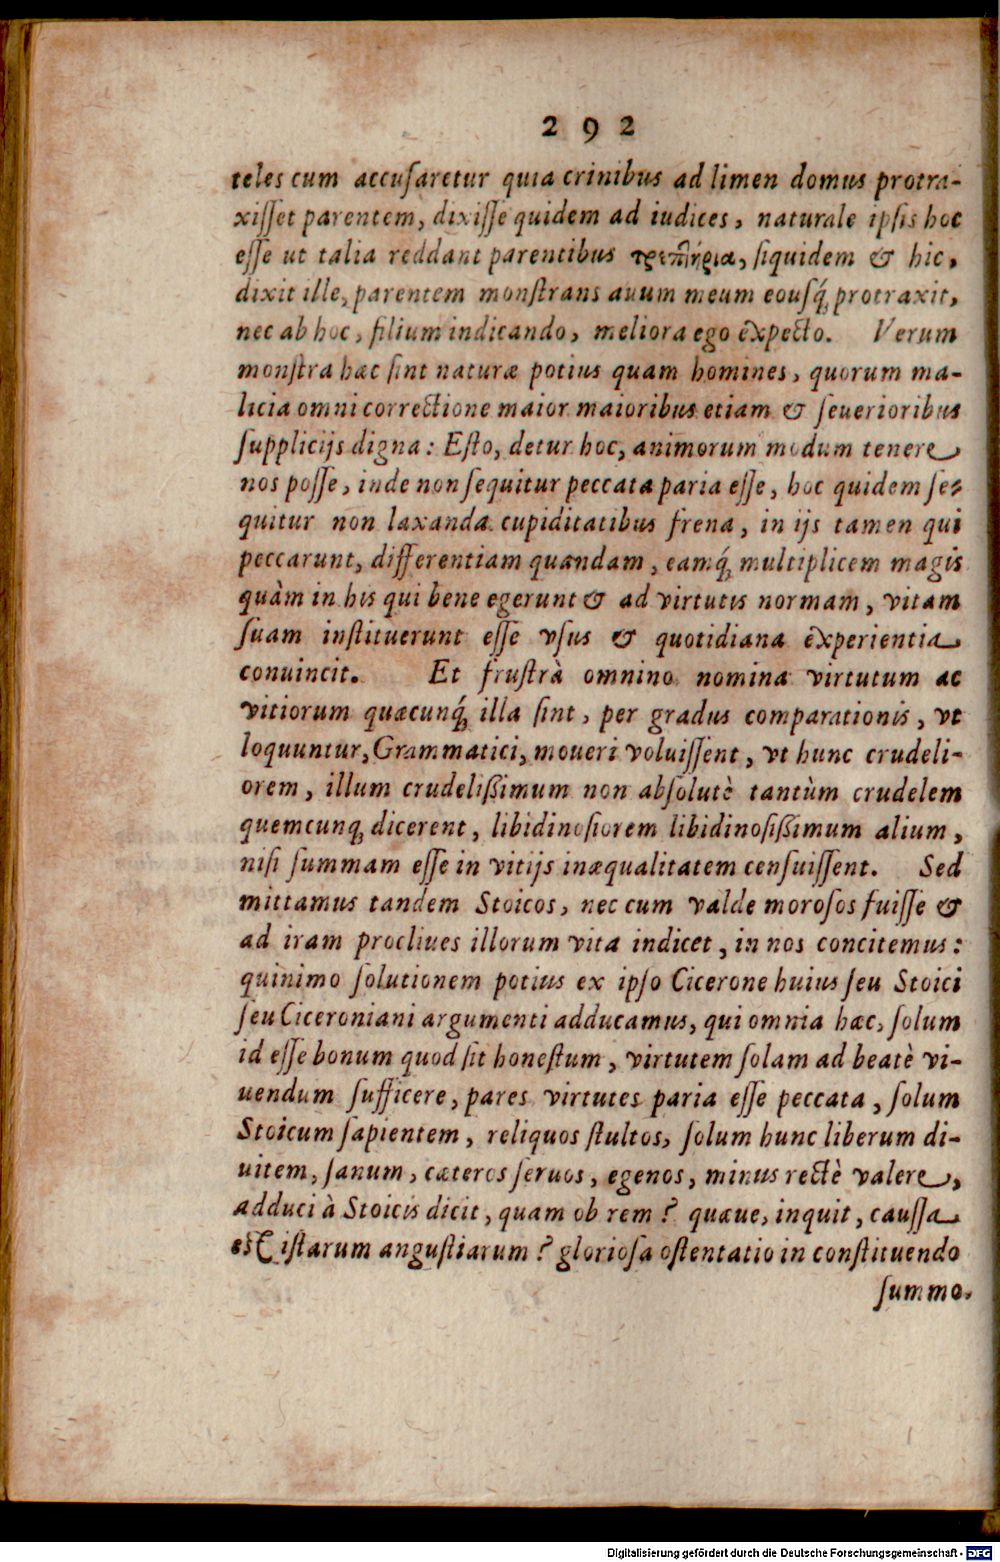 292
teles cum accuſaretur quia crinibus ad limen domus protra-
xiſſet parentem, dixiſſe quidem ad iudices, naturale ipſis hoc
eſſe ut talia reddant parentibus ſiquidem & hic,
dixit ille, parentem monſtrans auum meum eouſq́; protraxit,
nec ab hoc, filium indicando, meliora ego expecto. Verum
monſtra hæc ſint naturæ potius quam homines, quorum ma-
licia omni correctione maior maioribus etiam & ſeuerioribus
ſupplicijs digna: Eſto, detur hoc, animorum modum tenere
nos poſſe, inde non ſequitur peccata paria eſſe, hoc quidem ſe-
quitur non laxanda cupiditatibus frena, in ijs tamen qui
peccarunt, differentiam quandam, eamq́; multiplicem magis
quàm in his qui bene egerunt & ad virtutis normam, vitam
ſuam inſtituerunt eſſe vſus & quotidiana experientia
conuincit. Et fruſtrà omnino nomina virtutum ac
vitiorum quæcunq́; illa ſint, per gradus comparationis, vt
loquuntur, Grammatici, moueri voluiſſent, vt hunc crudeli-
orem, illum crudelißimum non abſolutè tantùm crudelem
quemcunq; dicerent, libidinoſiorem libidinoſißimum alium,
niſi ſummam eſſe in vitijs inæqualitatem cenſuiſſent. Sed
mittamus tandem Stoicos, nec cum valde moroſos fuiſſe &
ad iram procliues illorum vita indicet, in nos concitemus:
quinimo ſolutionem potius ex ipſo Cicerone huius ſeu Stoici
ſeu Ciceroniani argumenti adducamus, qui omnia hæc, ſolum
id eſſe bonum quod ſit honeſtum, virtutem ſolam ad beatè vi-
uendum ſufficere, pares virtutes paria eſſe peccata, ſolum
Stoicum ſapientem, reliquos ſtultos, ſolum hunc liberum di-
uitem, ſanum, cæteros ſeruos, egenos, minus rectè valere,
adduci à Stoicis dicit, quam ob rem? quæue, inquit, cauſſa
est iſtarum anguſtiarum? glorioſa oſtentatio in conſtituendo
ſummo.
Digitalisierung gefördert durch die Deutsche Forschungsgemeinschaft - DFG